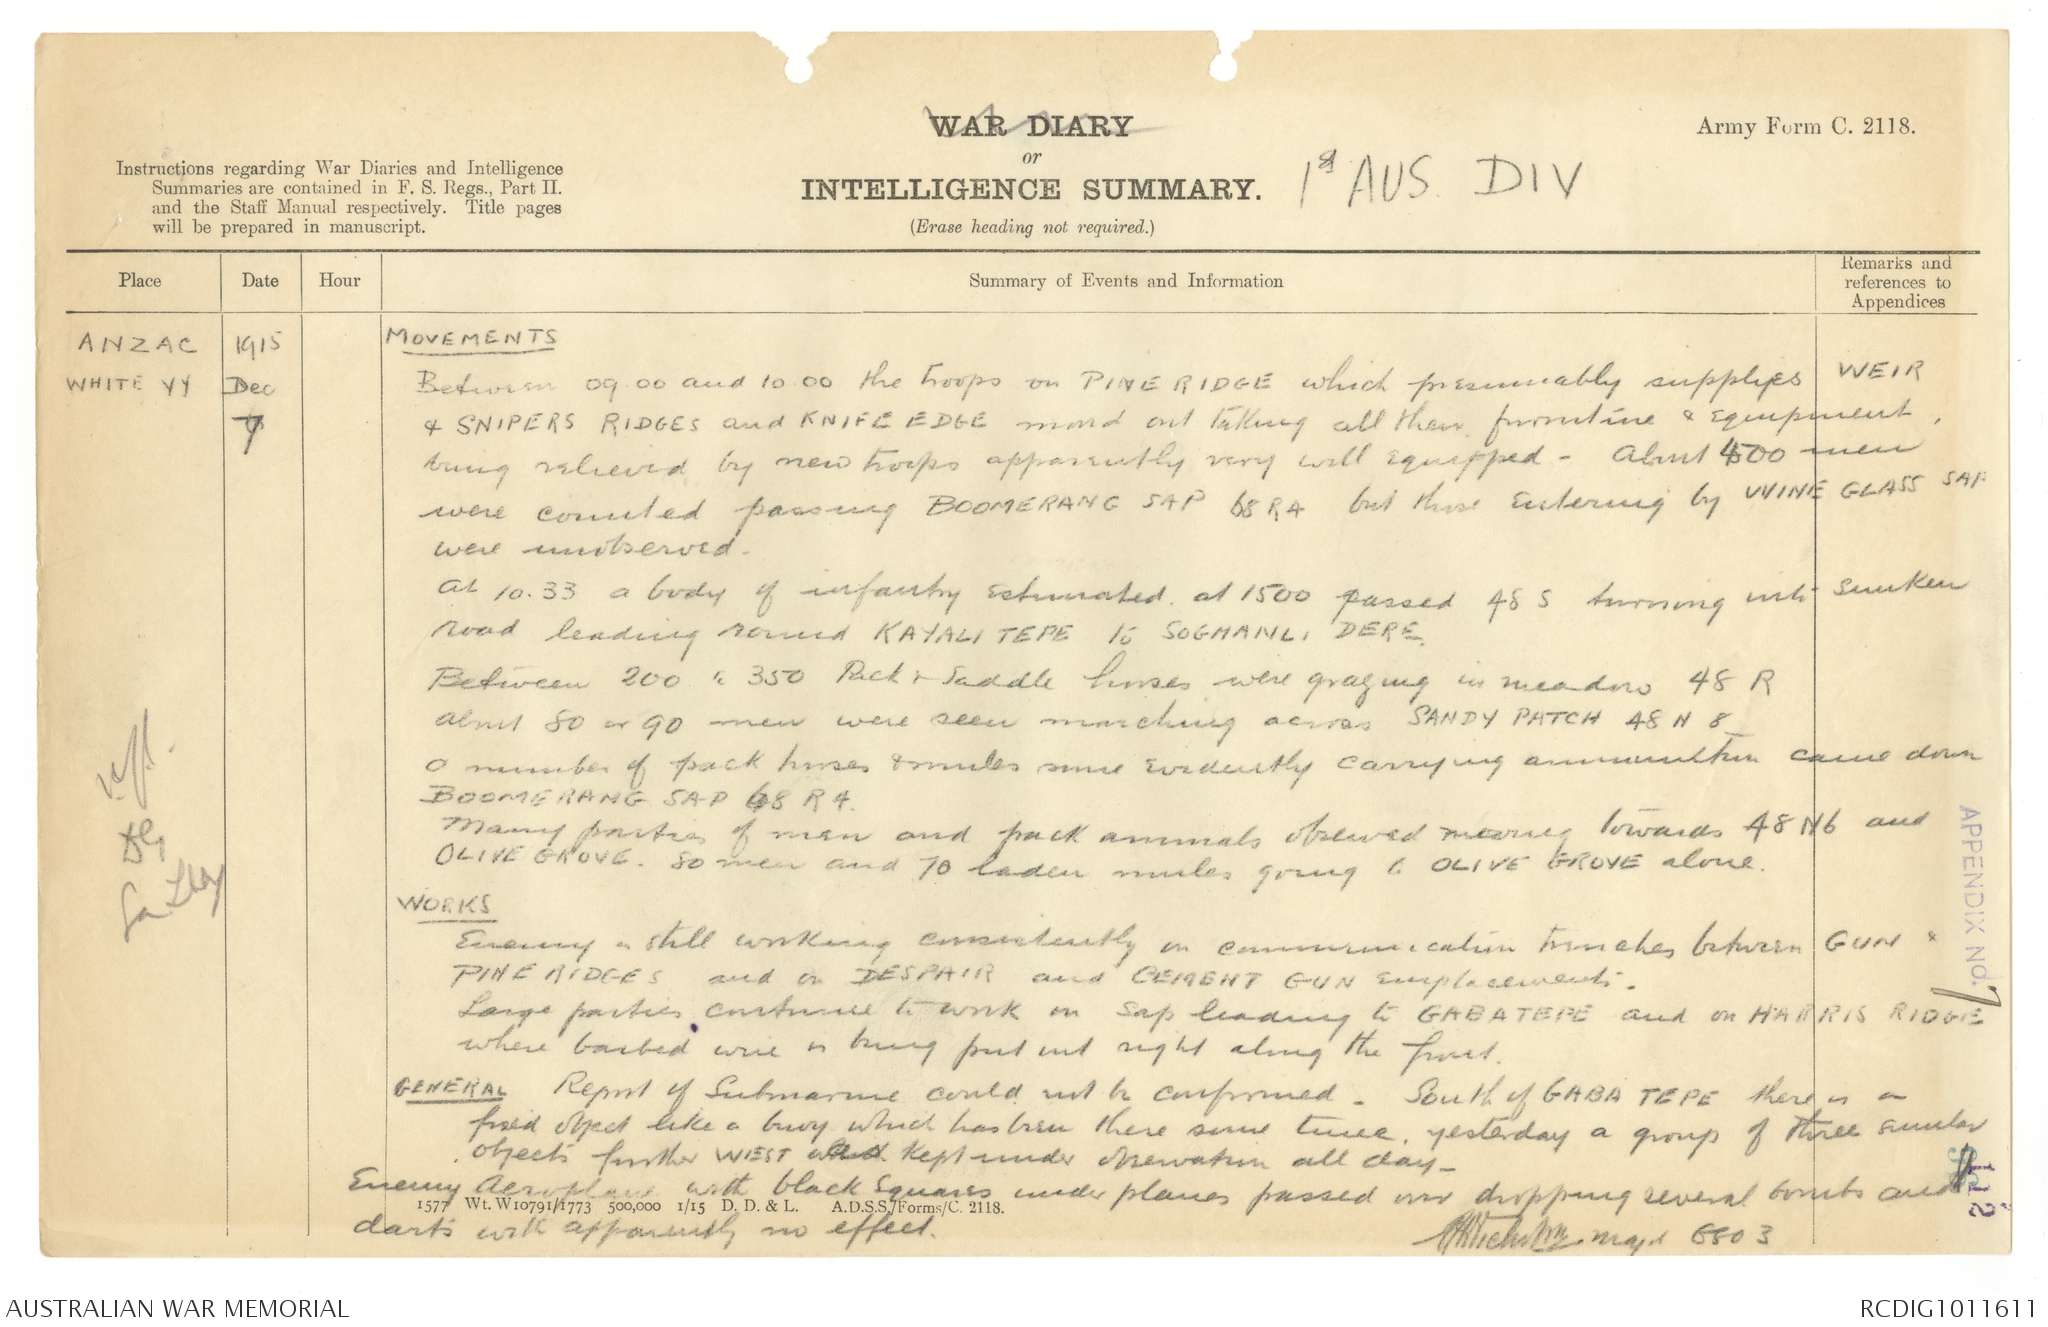 WAR DIARY
or
INTELLIGENCE SUMMARY.
(Erase heading not required.)
1st AUS. DIV
Army Form C. 2118.
Instructions regarding War Diaries and Intelligence
Summaries are contained in F. S. Regs., Part II.
and the Staff Manual respectively. Title pages
will be prepared in manuscript.
Place
Date
Hour
Summary of Events and Information
Remarks and
references to
Appendices
ANZAC
WHITE VY
1915
Dec
7
MOVEMENTS
Between 09.00 and 10.00 the troops on PINE RIDGE which presumably supplies WEIR
& SNIPERS RIDGES and KNIFE EDGE moved out taking all their furniture & equipment,
being relieved by new troops apparently very well equipped - About 400 men
were counted passing BOOMERANG SAP 68 R4 but those entering by WINE GLASS SAP
were unobserved.
At 10.33 a body of infantry estimated at 1500 passed 48 S turning into sunken
road leading round KAYALI TEPE to SOGHANLI DERE.
Between 200 & 350 Pack & Saddle horses were grazing in meadow 48 R
About 80 or 90 men were seen marching across SANDY PATCH 48 N 8
a number of pack horses & mules some evidently carrying ammunition came down
BOOMERANG SAP 68 R4.
Many parties of men and pack animals observed moving towards 48 N6 and
OLIVE GROVE. 80 men and 70 laden mules going to OLIVE GROVE alone.
WORKS
Enemy is still working consistently on communication trenches between GUN &
PINE RIDGES and on DESPAIR and CEMENT GUN emplacements.
Large parties continue to work on sap leading to GABA TEPE and on HARRIS RIDGE
where barbed wire is being put out right along the front.
GENERAL Report of Submarine could not be confirmed - South of GABA TEPE there is a
fixed object like a buoy which has been there some time, yesterday a group of three similar
objects further WEST kept under observation all day -
Enemy Aeroplane with black squares under planes passed over dropping several bombs and
darts with apparently no effect.
1577 Wt. W10791/1773 500,000 1/15 D. D. & L. A.D.S.S./Forms/C. 2118.
Major GSO 3
APPENDIX NO. 7
112
AUSTRALIAN WAR MEMORIAL
RCDIG1011611